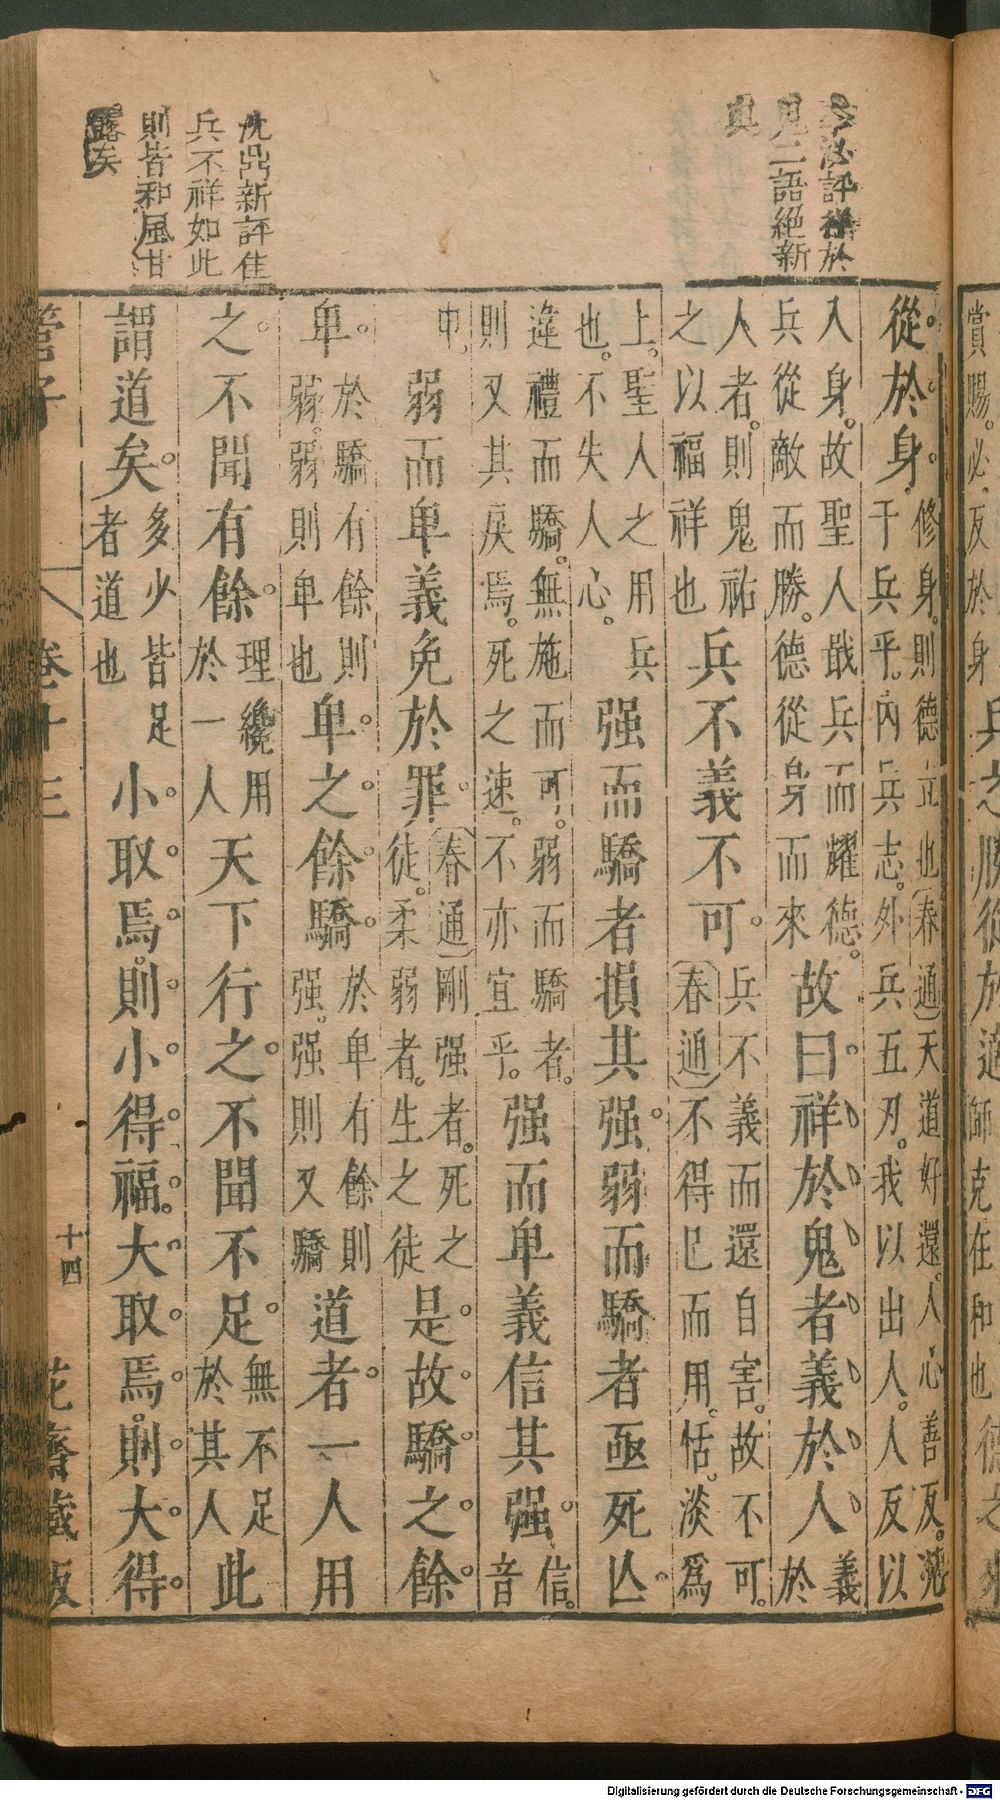 賞賜。必反於身 兵之勝從於適 師克在和也 德之來
評祥於
鬼二語絕新
從於身。修身。則德立也(春通)天道好還。人心善反。況于兵乎。內兵志。外兵五刃。我以出人。人反以
入身。故聖人戢兵而耀德。兵從敵而勝。德從身而來 故曰。祥於鬼者義於人 義於
人者。則鬼祐之以福祥也 兵不義不可。兵不義而還自害。故不可。(春通)不得已而用。恬淡爲
上。聖人之用兵也。不失人心。强而驕者損其强。弱而驕者亟死亾。
違禮而驕。無施而可。弱而驕者。則又其戾焉。死之速。不亦宜乎。强而卑義信其强。信。音
申 弱而卑義免於罪。(春通)剛强者。死之徒。柔弱者。生之徒 是故驕之餘
卑。於驕有餘則弱。弱則卑也 卑之餘驕。於卑有餘則强。强則又驕 道者。一人用
沈鼎新評佳
兵不祥如此
則皆和風甘
露矣
之。不聞有餘。理纔用於一人 天下行之。不聞不足。無不足於其人 此
謂道矣。多少皆足者道也 小取焉。則小得福。大取焉。則大得
管子 卷十三 十四 花齋藏板
Digitalisierung gefördert durch die Deutsche Forschungsgemeinschaft - DFG